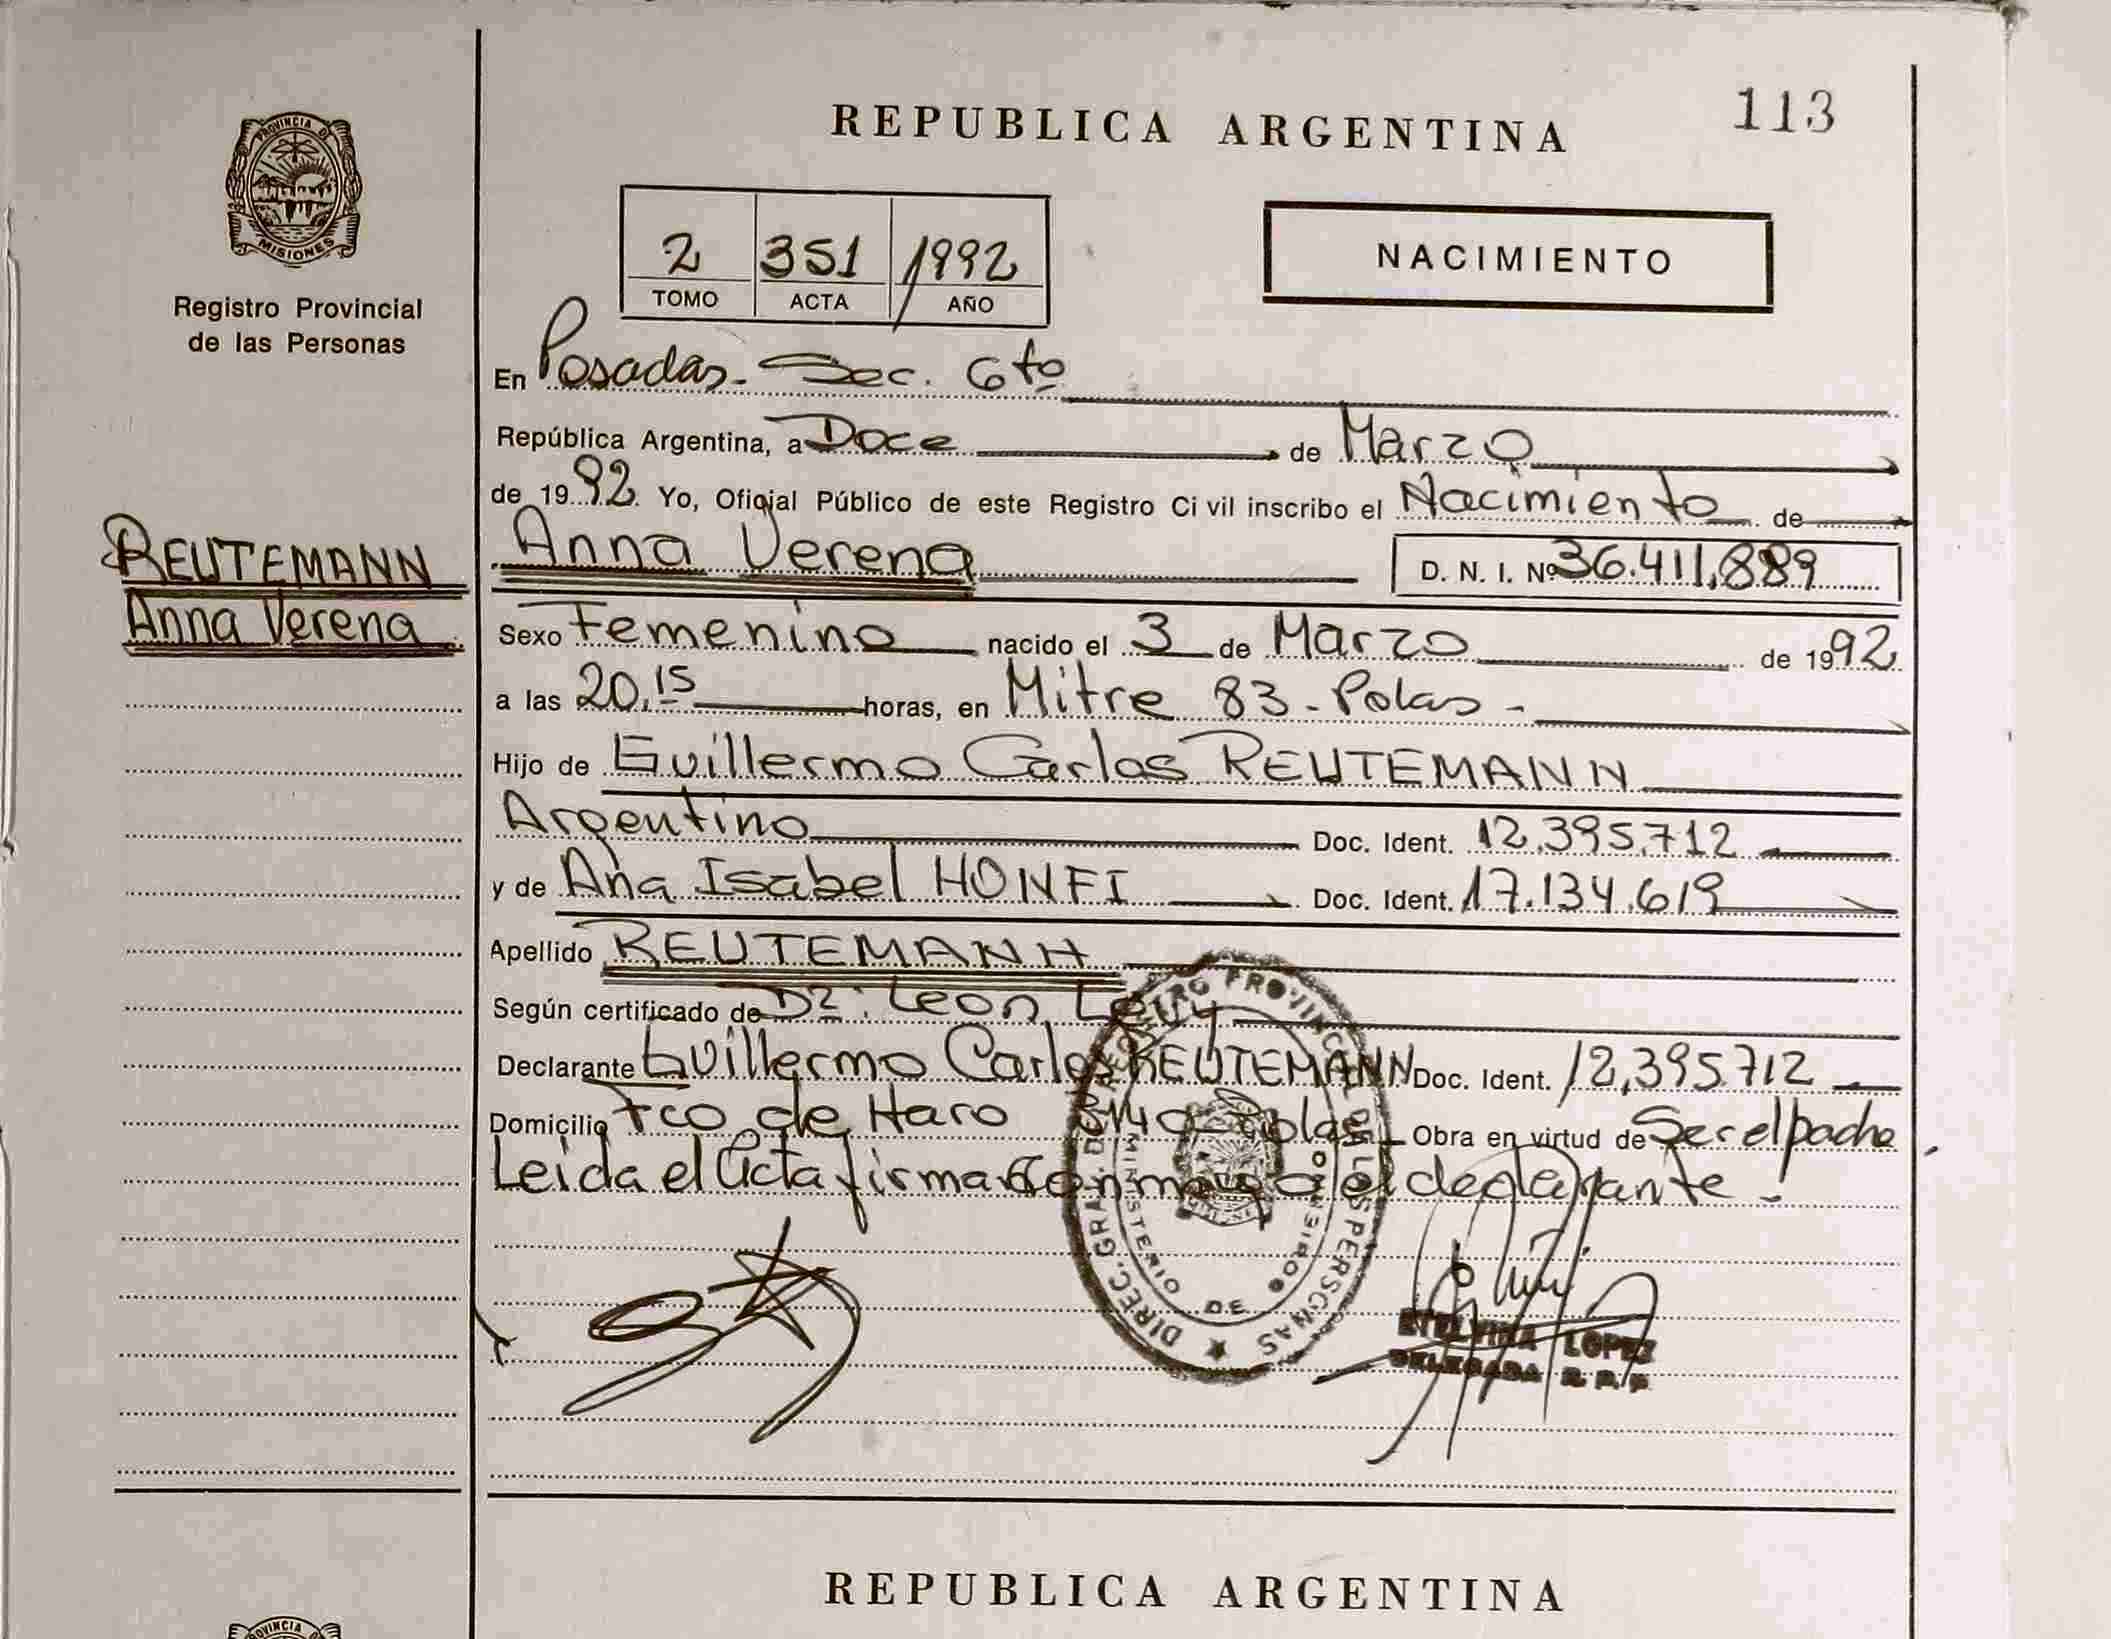 REPUBLICA ARGENTINA
113
PROVINCIA DE
MISIONES
Registro Provincial
de las Personas
2 351 1992
TOMO ACTA AÑO
NACIMIENTO
En Posadas - Sec. 6to
República Argentina, a Doce de Marzo
de 1992. Yo, Oficial Público de este Registro Civil inscribo el Nacimiento de
REUTEMANN
Anna Verena
Anna Verena D. N. I. Nº 36.411.889
Sexo Femenino nacido el 3 de Marzo de 1992
a las 20,15 horas, en Mitre 83 - Pdas -
Hijo de Guillermo Carlos REUTEMANN
Argentino Doc. Ident. 12.395.712
y de Ana Isabel HONFI Doc. Ident. 17.134.619
Apellido REUTEMANN
Según certificado de Dr. Leon Levy
Declarante Guillermo Carlos REUTEMANN Doc. Ident. 12,395.712
Domicilio Fco de Haro Pdas Obra en virtud de Ser el padre.
Leida el Acta firma conmigo el declarante.
DIREC. GRAL. DEL REGISTRO PROVINCIAL DE LAS PERSONAS
MINISTERIO DE GOBIERNO
ETELVINA LOPEZ
DELEGADA R. P. P.
REPUBLICA ARGENTINA
PROVINCIA DE